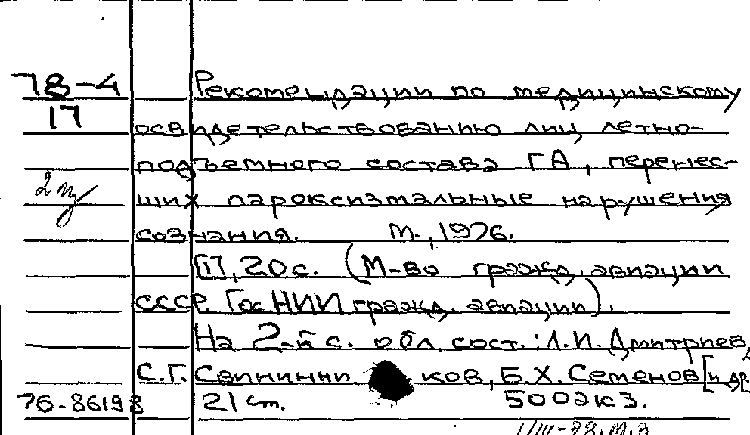 78-4 Рекомендации по медицинскому
17 освидетельствованию лиц летно-
подъемного состава ГА, перенес-
2 ц ших пароксизмальные нарушения
сознания. М., 1976.
[1], 20с. (М-во гражд. авиации
СССР. ГосНИИ гражд. авиации).
На 2-й с. обл. сост.: Л.И. Дмитриев,
С.Г. ков, Б.Х. Семенов [и др.
76-86198 21 cm. 500экз.